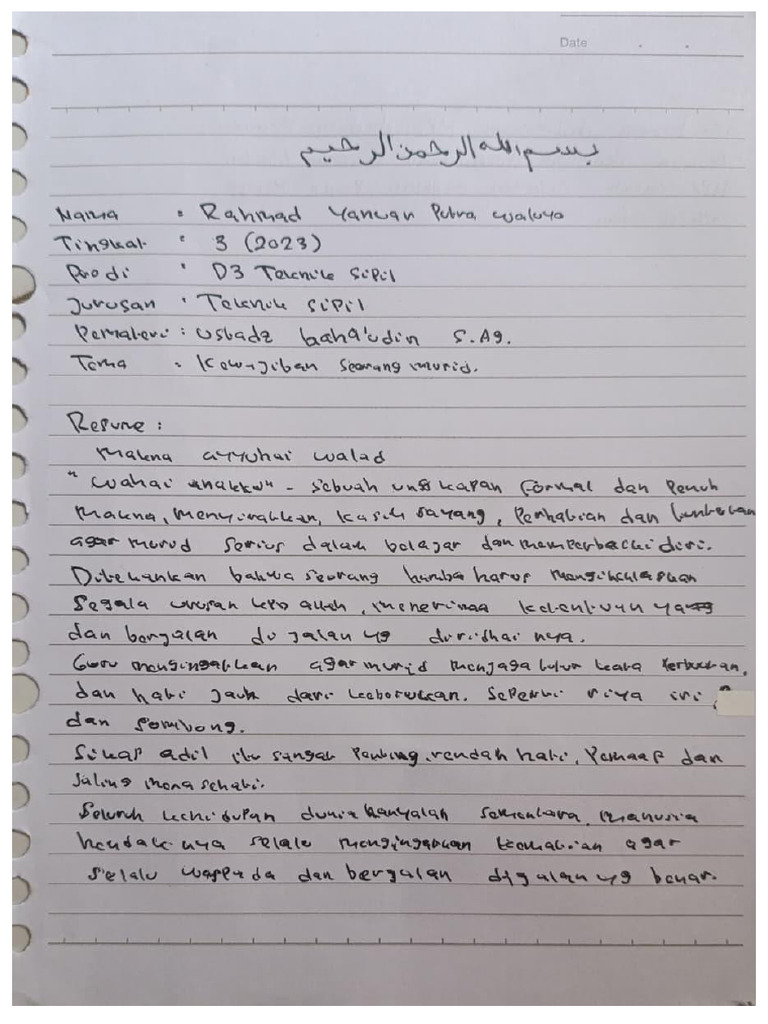 Date
بسم الله الرحمن الرحيم
Nama : Rahmad Yanuar Putra Waluyo
Tingkat : 3 (2023)
Prodi : D3 Teknik Sipil
Jurusan : Teknik Sipil
Pemateri : Ustadz baha'udin S.Ag.
Tema : Kewajiban Seorang murid.
Resume :
Makna ayyuhal walad
"Wahai anakku" - Sebuah ungkapan formal dan Penuh
Makna, menyiratkan, kasih sayang, Perhatian dan tuntutan
agar murid Serius dalam belajar dan memperbaiki diri.
Ditekankan bahwa seorang hamba harus mengikhlaskan
Segala urusan allah, menerima ketentuan yang
dan berjalan di jalan yg diridhai nya.
Guru mengingatkan agar murid menjaga tutur kata Perbuatan,
dan hati jauh dari keburukan. Seperti riya iri
dan Sombong.
Sikap adil itu sangat Penting, rendah hati, Pemaaf dan
Saling menasehati.
Seluruh kehidupan dunia hanyalah Sementara, manusia
hendaknya selalu mengingatkan kematian agar
Selalu waspada dan berjalan dijalan yg benar.